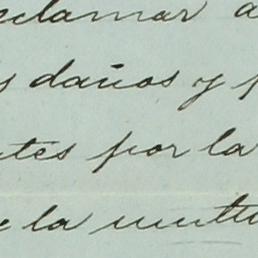 clamar a
s daños y p
ntes por la
e la mutu